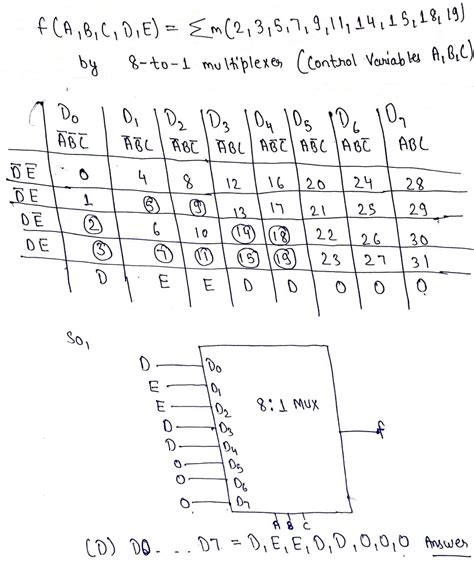 f(A,B,C,D,E) = Σm(2,3,5,7,9,11,14,15,18,19)
by 8-to-1 multiplexer (Control Variables A,B,C)
D₀ D₁ D₂ D₃ D₄ D₅ D₆ D₇
A̅B̅C̅ A̅B̅C A̅BC̅ A̅BC AB̅C̅ AB̅C ABC̅ ABC
D̅E̅ 0 4 8 12 16 20 24 28
D̅E 1 5 9 13 17 21 25 29
DE̅ 2 6 10 14 18 22 26 30
DE 3 7 11 15 19 23 27 31
D E E D D 0 0 0
So,
D D₀
E D₁
E D₂
8:1 MUX
D D₃
f
D D₄
0 D₅
0 D₆
0 D₇
A B C
(D) D0...D7 = D,E,E,D,D,0,0,0 Answer